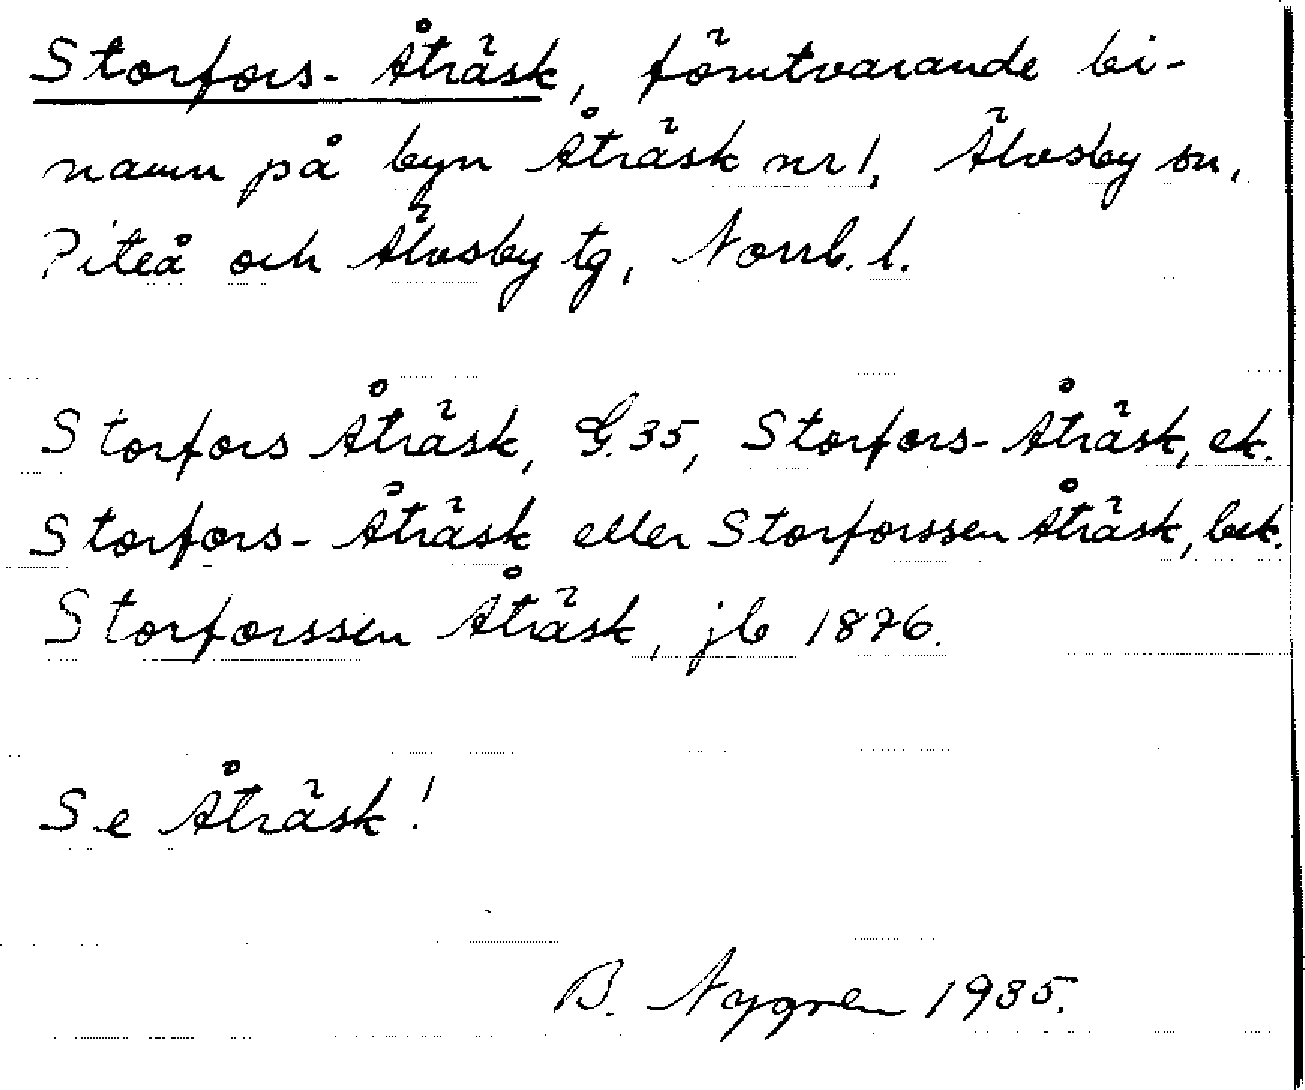 Storfors-Åträsk, förutvarande bi-
namn på byn Åträsk nr 1, Älvsby sn,
Piteå och Älvsby tg, Norrb. l.
Storfors Åträsk, G.35, Storfors-Åträsk, ek.
Storfors-Åträsk eller Storforssen Åträsk, bek.
Storforssen Åträsk, jb 1876.
Se Åträsk!
B. Nygren 1935.